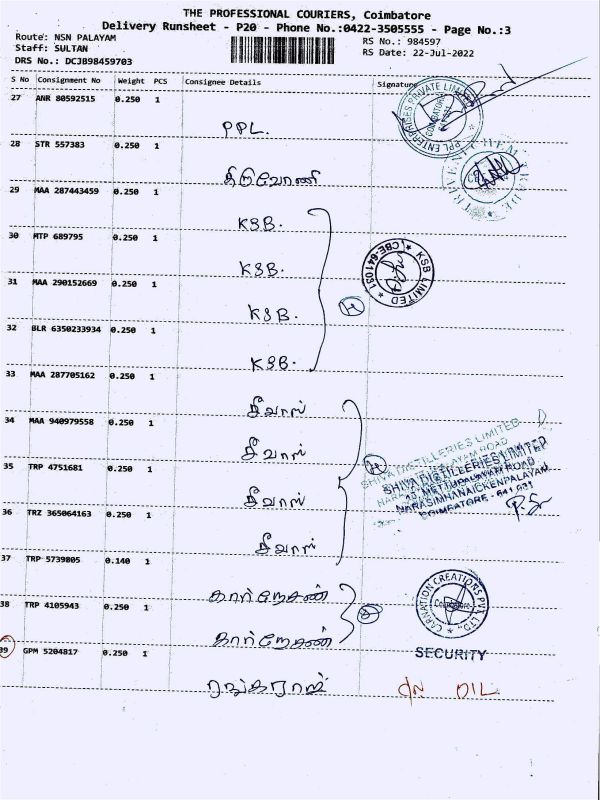 THE PROFESSIONAL COURIERS, Coimbatore
Delivery Runsheet - P20 - Phone No.:0422-3505555 - Page No.:3
Route: NSN PALAYAM
RS No.: 984597
Staff: SULTAN
RS Date: 22-Jul-2022
DRS No.: DCJB98459703
S No Consignment No Weight PCS Consignee Details Signature
27 ANR 80592515 0.250 1
PPL.
PPL ENTERPRISES PRIVATE LIMITED
28 STR 557383 0.250 1
திருவோணி
29 MAA 287443459 0.250 1
KSB.
30 MTP 689795 0.250 1
KSB.
KSB LIMITED
31 MAA 290152669 0.250 1
KSB.
32 BLR 6350233934 0.250 1
KSB.
33 MAA 287705162 0.250 1
சீவாஸ்
34 MAA 940979558 0.250 1
சீவாஸ்
35 TRP 4751681 0.250 1
சீவாஸ்
SHIVA DISTILLERIES LIMITED
METTUPALAYAM ROAD
NARASIMHANAICKENPALAYAM
COIMBATORE - 641 031
36 TRZ 365064163 0.250 1
சீவாஸ்
37 TRP 5739805 0.140 1
கார்னேசன்
38 TRP 4105943 0.250 1
கார்னேசன்
CARNATION CREATIONS PVT LTD
Coimbatore
SECURITY
39 GPM 5204817 0.250 1
ரங்கராஜ்
DIL